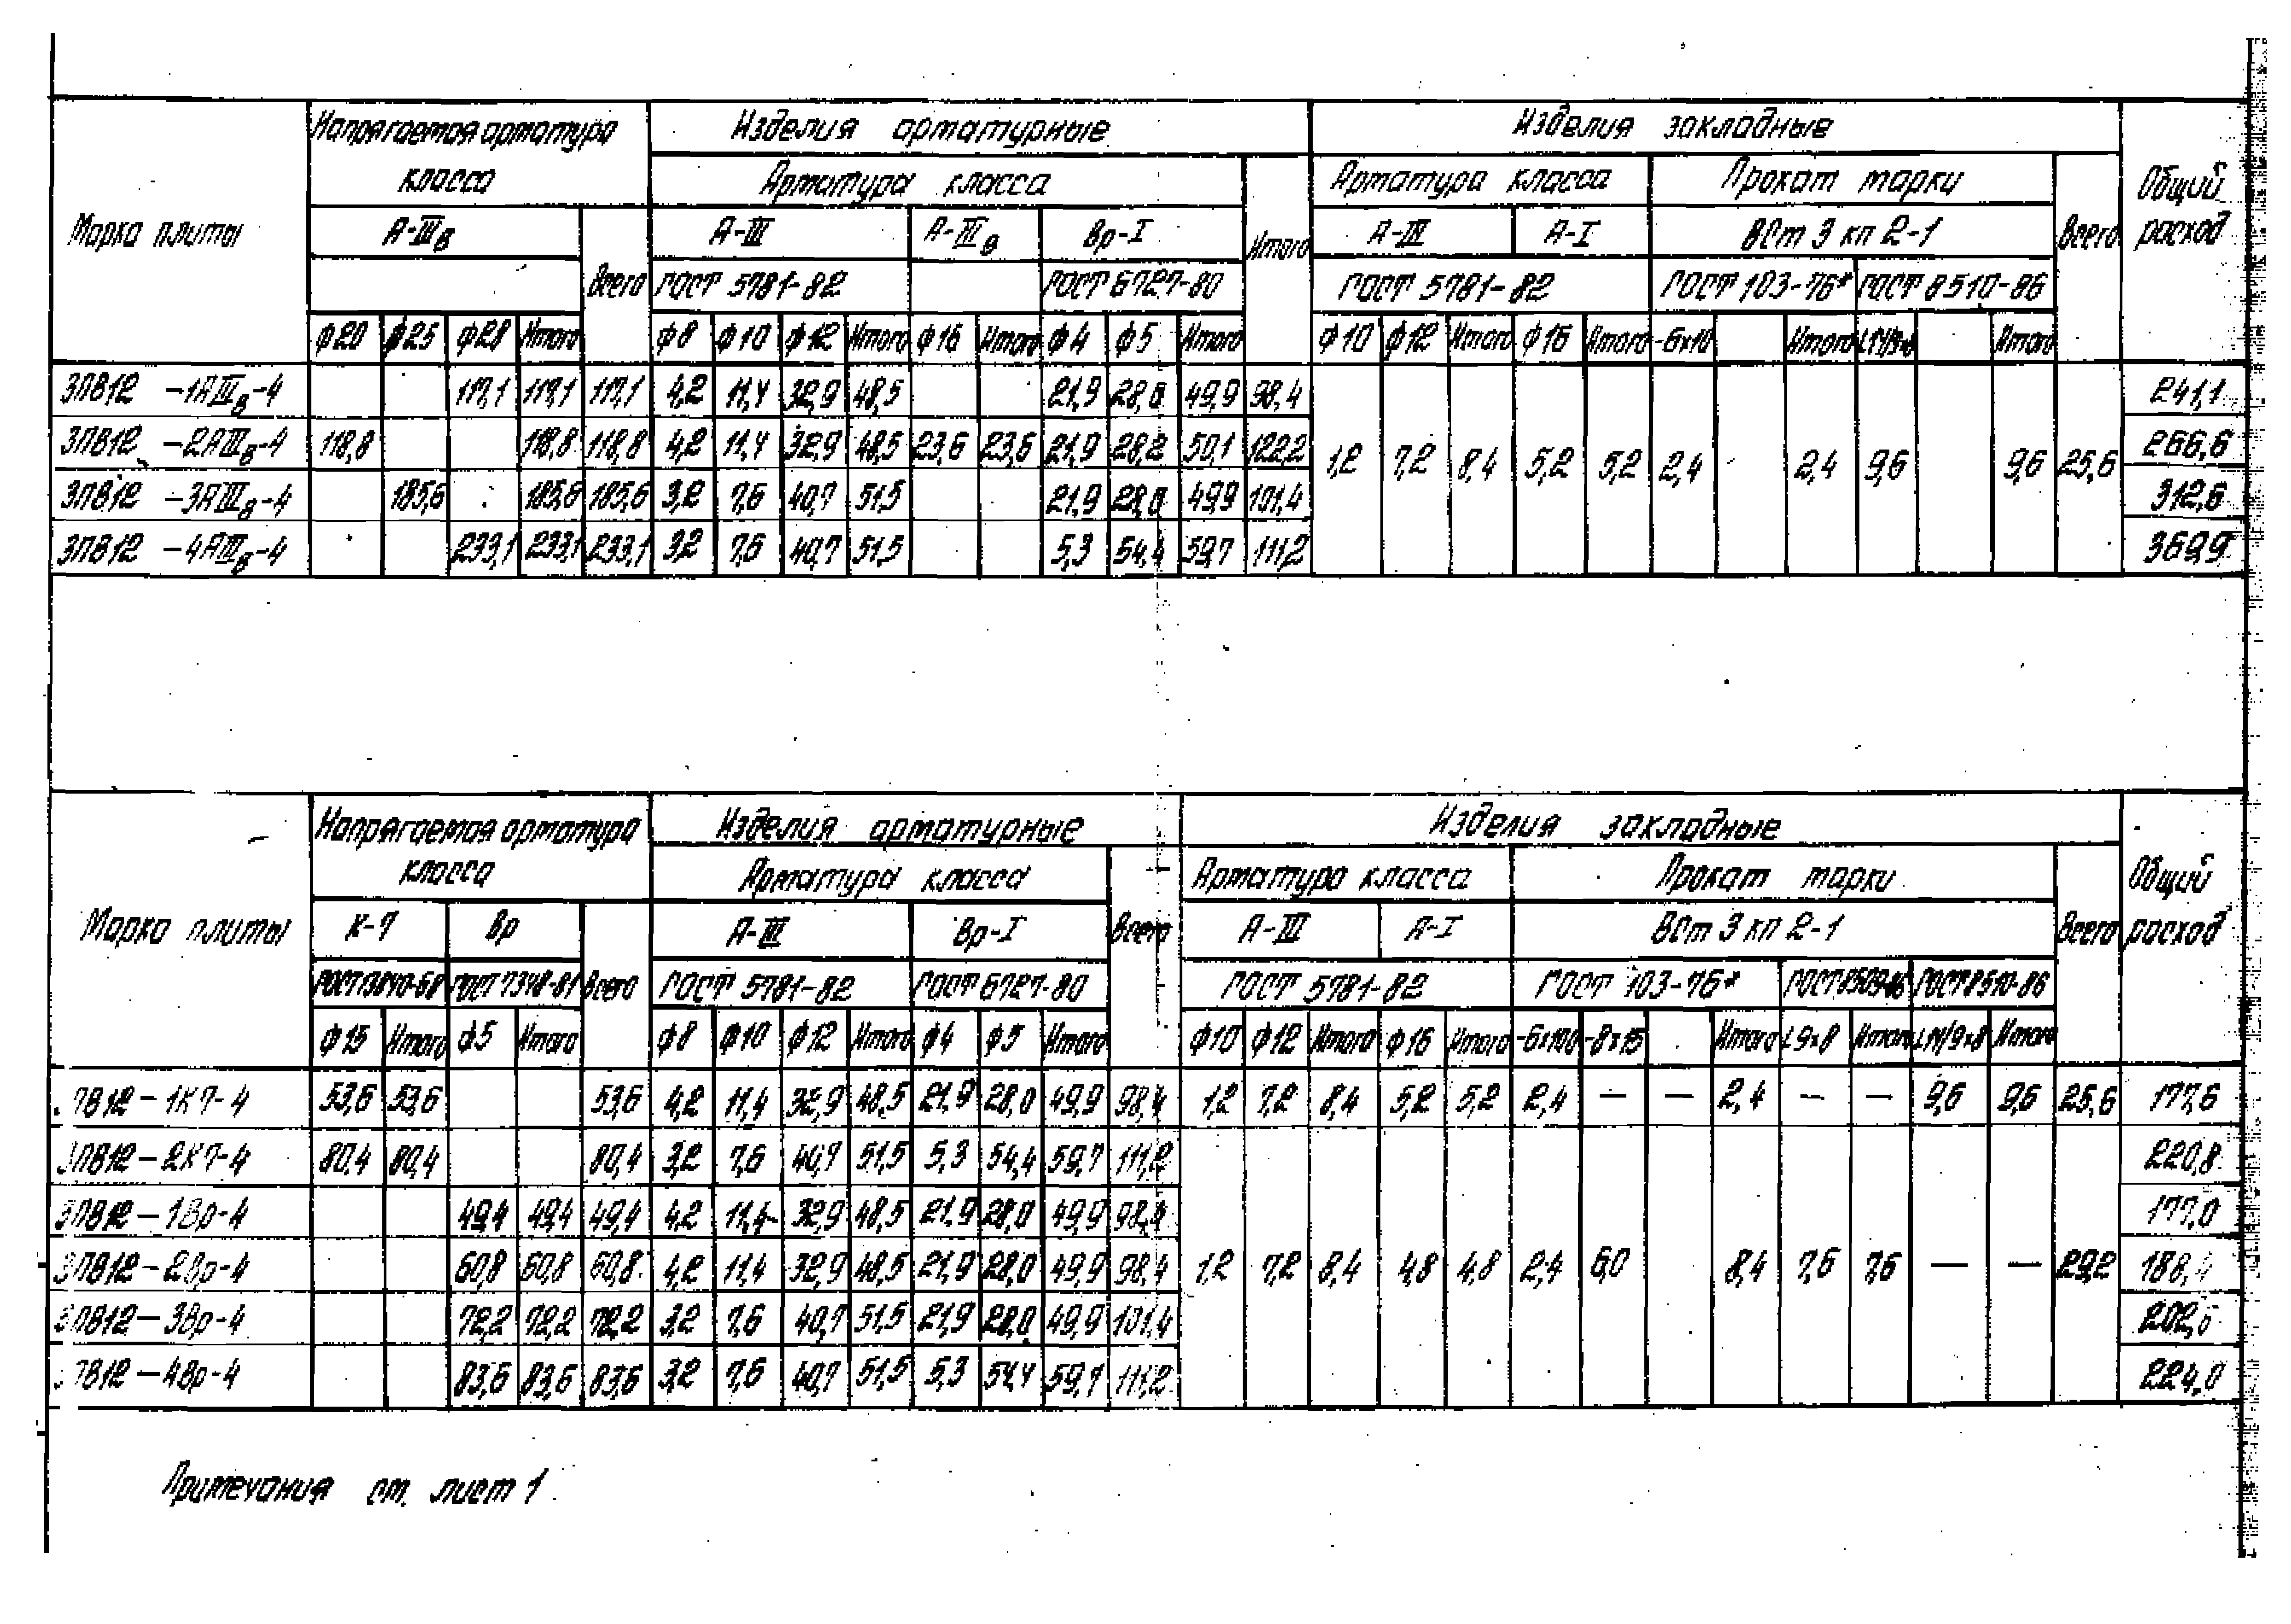 Марка плиты | Напрягаемая арматура класса | Изделия арматурные | Изделия закладные | Общий расход
Арматура класса | Итого | Арматура класса | Прокат марки | Всего
А-IIIв | Всего | А-III | А-IIIв | Вр-I | А-III | А-I | ВСт 3 кп 2-1
ГОСТ 5781-82 | ГОСТ 6727-80 | ГОСТ 5781-82 | ГОСТ 103-76* | ГОСТ 8510-86
ф20 | ф25 | ф28 | Итого | ф8 | ф10 | ф12 | Итого | ф16 | Итого | ф4 | ф5 | Итого | ф10 | ф12 | Итого | ф16 | Итого | -6х10 | Итого | Итого
3ПВ12 -1АIIIв-4 | 117,1 | 117,1 | 117,1 | 4,2 | 11,4 | 32,9 | 48,5 | 21,9 | 28,0 | 49,9 | 98,4 | 241,1
3ПВ12 -2АIIIв-4 | 118,8 | 118,8 | 118,8 | 4,2 | 11,4 | 32,9 | 48,5 | 23,6 | 23,6 | 21,9 | 28,2 | 50,1 | 122,2 | 1,2 | 7,2 | 8,4 | 5,2 | 5,2 | 2,4 | 2,4 | 9,6 | 9,6 | 25,6 | 266,6
3ПВ12 -3АIIIв-4 | 185,6 | 185,6 | 185,6 | 3,2 | 7,6 | 40,7 | 51,5 | 21,9 | 28,0 | 49,9 | 101,4 | 312,6
3ПВ12 -4АIIIв-4 | 233,1 | 233,1 | 233,1 | 3,2 | 7,6 | 40,7 | 51,5 | 5,3 | 54,4 | 59,7 | 111,2 | 369,9
Марка плиты | Напрягаемая арматура класса | Изделия арматурные | Изделия закладные | Общий расход
Арматура класса | Всего | Арматура класса | Прокат марки | Всего
К-7 | Вр | Всего | А-III | Вр-I | А-III | А-I | ВСт 3 кп 2-1
ГОСТ 13840-68 | ГОСТ 7348-81 | ГОСТ 5781-82 | ГОСТ 6727-80 | ГОСТ 5781-82 | ГОСТ 103-76* | ГОСТ 8509-86 | ГОСТ 8510-86
ф15 | Итого | ф5 | Итого | ф8 | ф10 | ф12 | Итого | ф4 | ф5 | Итого | ф10 | ф12 | Итого | ф16 | Итого | -6х100 | -8х15 | Итого | L9х8 | Итого | L14/9х8 | Итого
ПВ12-1К7-4 | 53,6 | 53,6 | 53,6 | 4,2 | 11,4 | 32,9 | 48,5 | 21,9 | 28,0 | 49,9 | 98,4 | 1,2 | 7,2 | 8,4 | 5,2 | 5,2 | 2,4 | — | — | 2,4 | — | — | 9,6 | 9,6 | 25,6 | 177,6
3ПВ12-2К7-4 | 80,4 | 80,4 | 80,4 | 3,2 | 7,6 | 40,7 | 51,5 | 5,3 | 54,4 | 59,7 | 111,2 | 220,8
3ПВ12-1Вр-4 | 49,4 | 49,4 | 49,4 | 4,2 | 11,4 | 32,9 | 48,5 | 21,9 | 28,0 | 49,9 | 98,4 | 177,0
3ПВ12-2Вр-4 | 60,8 | 60,8 | 60,8 | 4,2 | 11,4 | 32,9 | 48,5 | 21,9 | 28,0 | 49,9 | 98,4 | 1,2 | 7,2 | 8,4 | 4,8 | 4,8 | 2,4 | 6,0 | 8,4 | 7,6 | 7,6 | — | — | 29,2 | 188,4
3ПВ12-3Вр-4 | 72,2 | 72,2 | 72,2 | 3,2 | 7,6 | 40,7 | 51,5 | 21,9 | 28,0 | 49,9 | 101,4 | 202,8
ПВ12-4Вр-4 | 83,6 | 83,6 | 83,6 | 3,2 | 7,6 | 40,7 | 51,5 | 5,3 | 54,4 | 59,7 | 111,2 | 224,0
Примечания см. лист 1